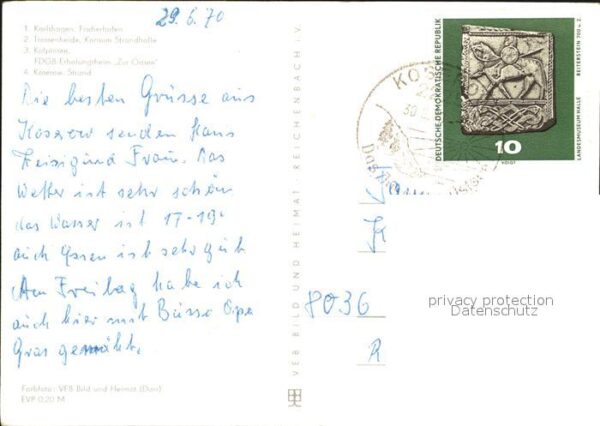 29.6.70
1 Karlshagen, Fischerhafen
2 Trassenheide, Konsum Strandhalle
3 Kölpinsee,
FDGB-Erholungsheim „Zur Ostsee"
4 Koserow, Strand
Die besten Grüsse aus
Koserow senden Hans
und Frau. Das
Wetter ist sehr schön
das Wasser ist 17-19°
auch Essen ist sehr gut
Am Freitag habe ich
auch hier mit Opa
Gras gemäht.
Farbfoto: VEB Bild und Heimat (Dan)
EVP 0,20 M
VEB BILD UND HEIMAT REICHENBACH i. V.
DEUTSCHE DEMOKRATISCHE REPUBLIK
10
VOIGT
LANDESMUSEUM HALLE REITERSTEIN 700 u. Z.
KOS
30
8036
privacy protection
Datenschutz